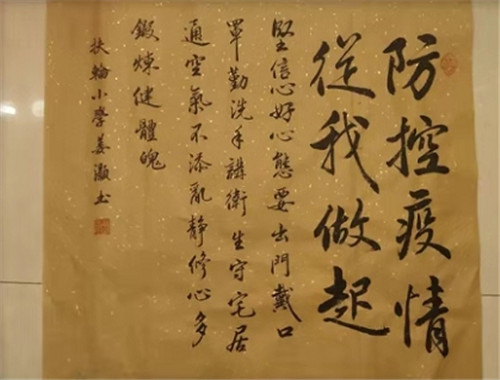 防控疫情
從我做起
堅信心好心態要出門戴口
罩勤洗手講衛生守宅居
通空氣不添亂靜修心多
鍛煉健體魄
扶輪小學姜灝書